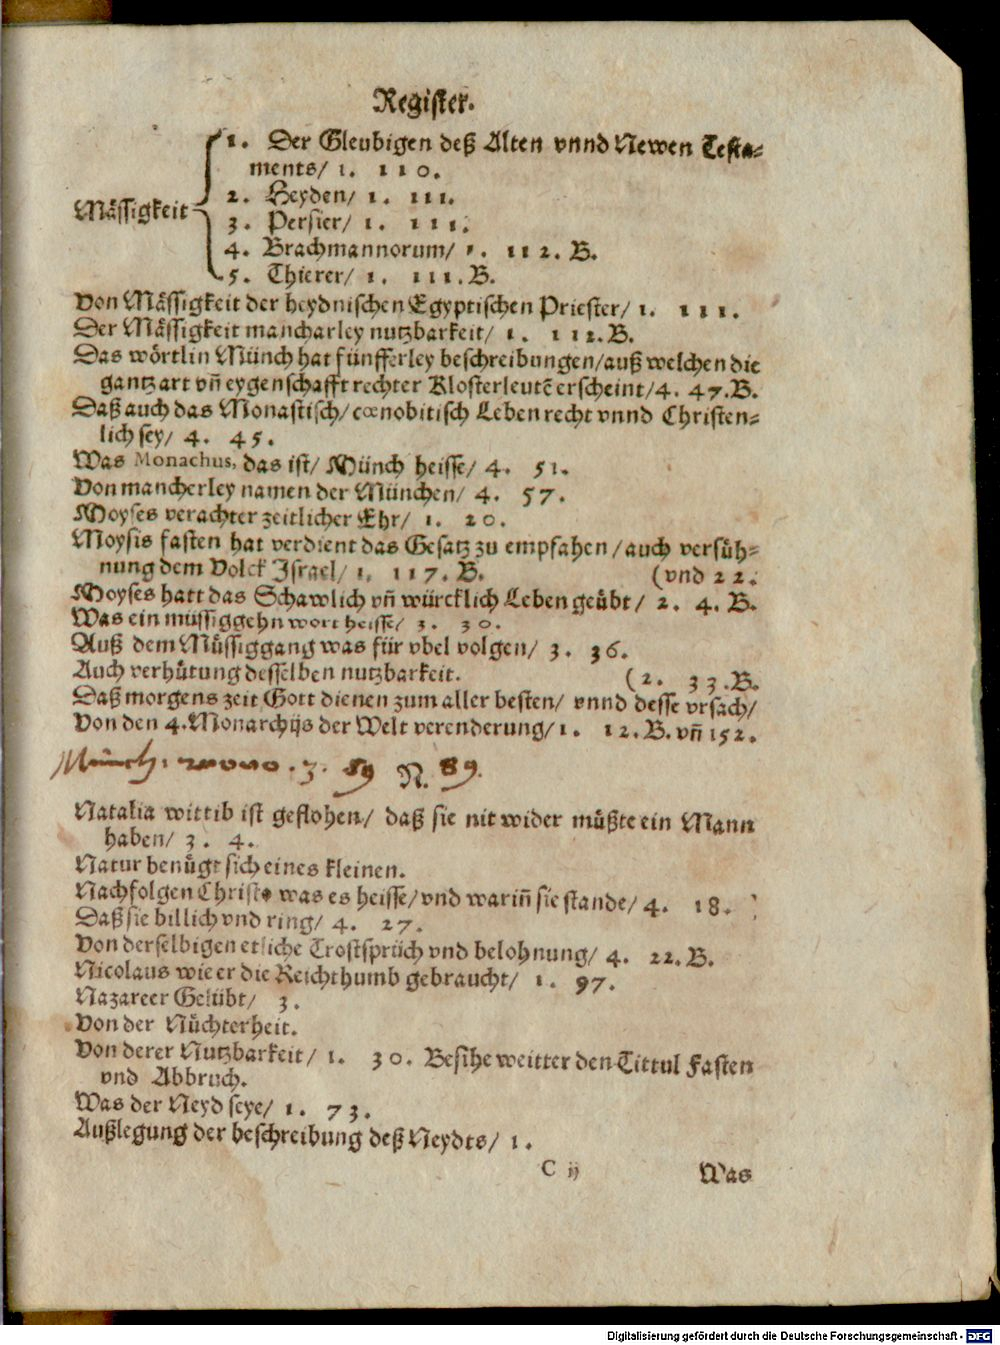 Register.
1. Der Gleubigen deß Alten vnnd Newen Testa=
ments/ 1. 110.
2. Heyden/ 1. 111.
Mässigkeit
3. Persier/ 1. 111.
4. Brachmannorum/ 1. 112. B.
5. Thierer/ 1. 111. B.
Von Mässigkeit der heydnischen Egyptischen Priester/ 1. 111.
Der Mässigkeit mancharley nutzbarkeit/ 1. 112. B.
Das wörtlin Münch hat fünfferley beschreibungen/ auß welchen die
gantz art vñ eygenschafft rechter Klosterleutẽ erscheint/ 4. 47. B.
Daß auch das Monastisch/ cœnobitisch Leben recht vnnd Christen=
lich sey/ 4. 45.
Was Monachus, das ist/ Münch heisse/ 4. 51.
Von mancherley namen der München/ 4. 57.
Moyses verachter zeitlicher Ehr/ 1. 20.
Moysis fasten hat verdient das Gesatz zu empfahen/ auch versüh=
nung dem Volck Israel/ 1. 117. B. (vnd 22.
Moyses hatt das Schawlich vñ würcklich Leben geübt/ 2. 4. B.
Was ein müssiggehn wort heisse/ 3. 30.
Auß dem Müssiggang was für vbel volgen/ 3. 36.
Auch verhütung desselben nutzbarkeit. (2. 33. B.
Daß morgens zeit Gott dienen zum aller besten/ vnnd desse vrsach/
Von den 4. Monarchijs der Welt verenderung/ 1. 12. B. vñ 152.
Münch. 3. 59 N. 89.
Natalia wittib ist geflohen/ daß sie nit wider müßte ein Mann
haben/ 3. 4.
Natur benügt sich eines kleinen.
Nachfolgen Christo was es heisse/ vnd wariñ sie stande/ 4. 18.
Daß sie billich vnd ring/ 4. 27.
Von derselbigen etliche Trostsprüch vnd belohnung/ 4. 22. B.
Nicolaus wie er die Reichthumb gebraucht/ 1. 97.
Nazareer Gelübt/ 3.
Von der Nüchterheit.
Von derer Nutzbarkeit/ 1. 30. Besihe weitter den Tittul Fasten
vnd Abbruch.
Was der Neyd seye/ 1. 73.
Außlegung der beschreibung deß Neydts/ 1.
C ij Was
Digitalisierung gefördert durch die Deutsche Forschungsgemeinschaft - DFG